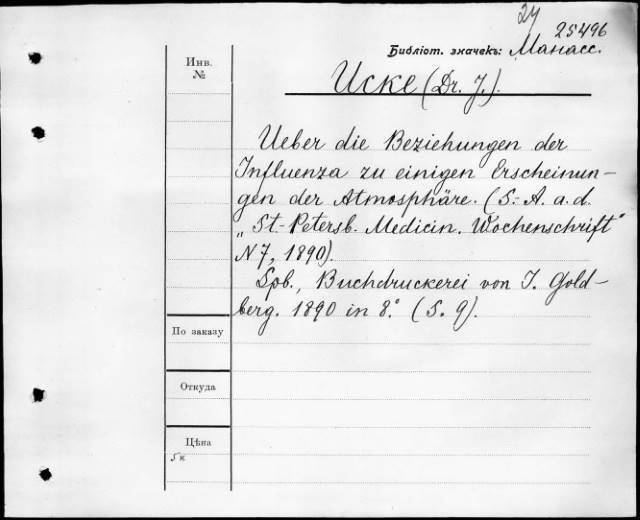 24
25496
Библіот. значекъ: Манасс.
Инв.
№
Ucke (Dr. J.).
Ueber die Beziehungen der
Influenza zu einigen Erscheinun-
gen der Atmosphäre. (S.-A. a. d.
„St.-Petersb. Medicin. Wochenschrift"
N 7, 1890).
Spb., Buchdruckerei von J. Gold-
berg. 1890 in 8.° (S. 9).
По заказу
Откуда
Цѣна
5 к